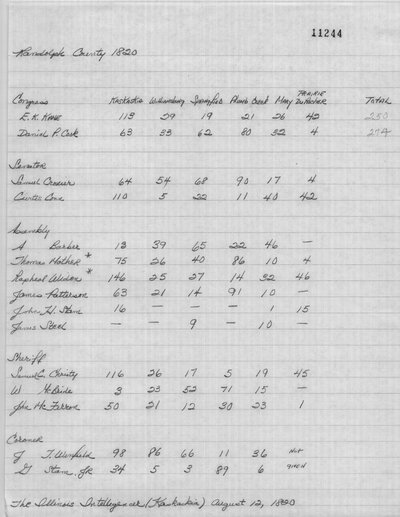 11244
Randolph County 1820
Congress Kaskaskia Williamsburg Springfield Plumb Creek Mary PRAIRIE DU ROCHER TOTAL
E. K. Kane 113 29 19 21 26 42 250
Daniel P. Cook 63 33 62 80 32 4 274
Senator
Samuel Crozier 64 54 68 90 17 4
Curtis Cone 110 5 22 11 40 42
Assembly
A Barker 13 39 65 22 46 —
Thomas Mother * 75 26 40 86 10 4
Raphael Widen * 146 25 27 14 32 46
James Patterson 63 21 14 91 10 —
John H. 16 — — — 1 15
James Steel — — 9 — 10 —
Sheriff
Samuel C. Christy 116 26 17 5 19 45
W McBride 3 23 52 71 15 —
Jhn McFerron 50 21 12 30 23 1
Coroner
J T. Winfield 98 86 66 11 36 NOT
G JR 34 5 3 89 6 GIVEN
The Illinois Intelligencer (Kaskaskia) August 12, 1820